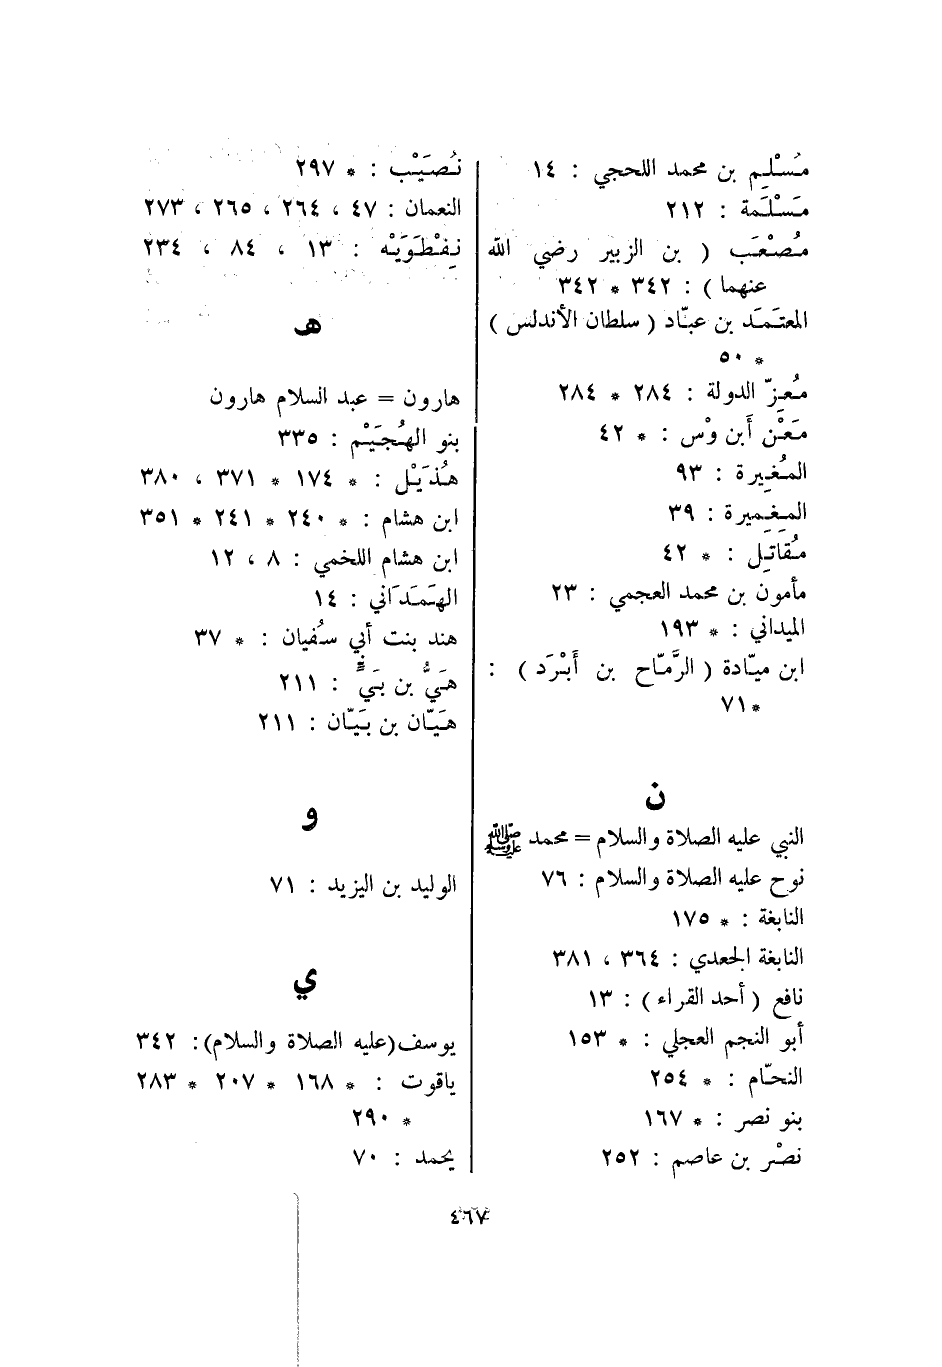 مُسْلِم بن محمد اللحجي : ١٤
مَسْلَمة : ٢١٢
مُصْعَب ( بن الزبير رضي الله
عنهما ) : ٣٤٢ * ٣٤٢
المعتَمَد بن عبّاد ( سلطان الأندلس )
* ٥٠
مُعِزّ الدولة : ٢٨٤ * ٢٨٤
مَعْن أَبن وْس : * ٤٢
المُغِيرة : ٩٣
المِغِميرة : ٣٩
مُقاتَِل : * ٤٢
مأمون بن محمد العجمي : ٢٣
الميداني : * ١٩٣
ابن ميّادة ( الرَّمّاح بن أَبْرَد ) :
* ٧١
ن
النبي عليه الصلاة والسلام = محمد ﷺ
نوح عليه الصلاة والسلام : ٧٦
النابغة : * ١٧٥
النابغة الجعدي : ٣٦٤ ، ٣٨١
نافع ( أحد القراء ) : ١٣
أبو النجم العجلي : * ١٥٣
النحّام : * ٢٥٤
بنو نصر : * ١٦٧
نصْر بن عاصم : ٢٥٢
نُصَيْب : * ٢٩٧
النعمان : ٤٧ ، ٢٦٤ ، ٢٦٥ ، ٢٧٣
نِفِطْوَيْه : ١٣ ، ٨٤ ، ٢٣٤
هـ
هارون = عبد السلام هارون
بنو الهُجَيْم : ٣٣٥
هُذَيْل : * ١٧٤ * ٣٧١ ، ٣٨٠
ابن هشام : * ٢٤٠ * ٢٤١ * ٣٥١
ابن هشام اللخمي : ٨ ، ١٢
الهَمَدَاني : ١٤
هند بنت أبي سُفيان : * ٣٧
هَيُّ بن بَيٍّ : ٢١١
هَيّان بن بَيّان : ٢١١
و
الوليد بن اليزيد : ٧١
ي
يوسف(عليه الصلاة والسلام): ٣٤٢
ياقوت : * ١٦٨ * ٢٠٧ * ٢٨٣
* ٢٩٠
يحمد : ٧٠
٤٦٧